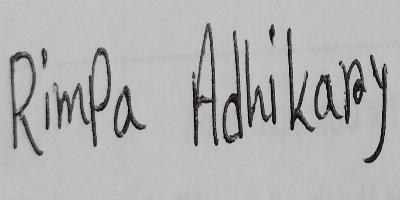 Rimpa Adhikary